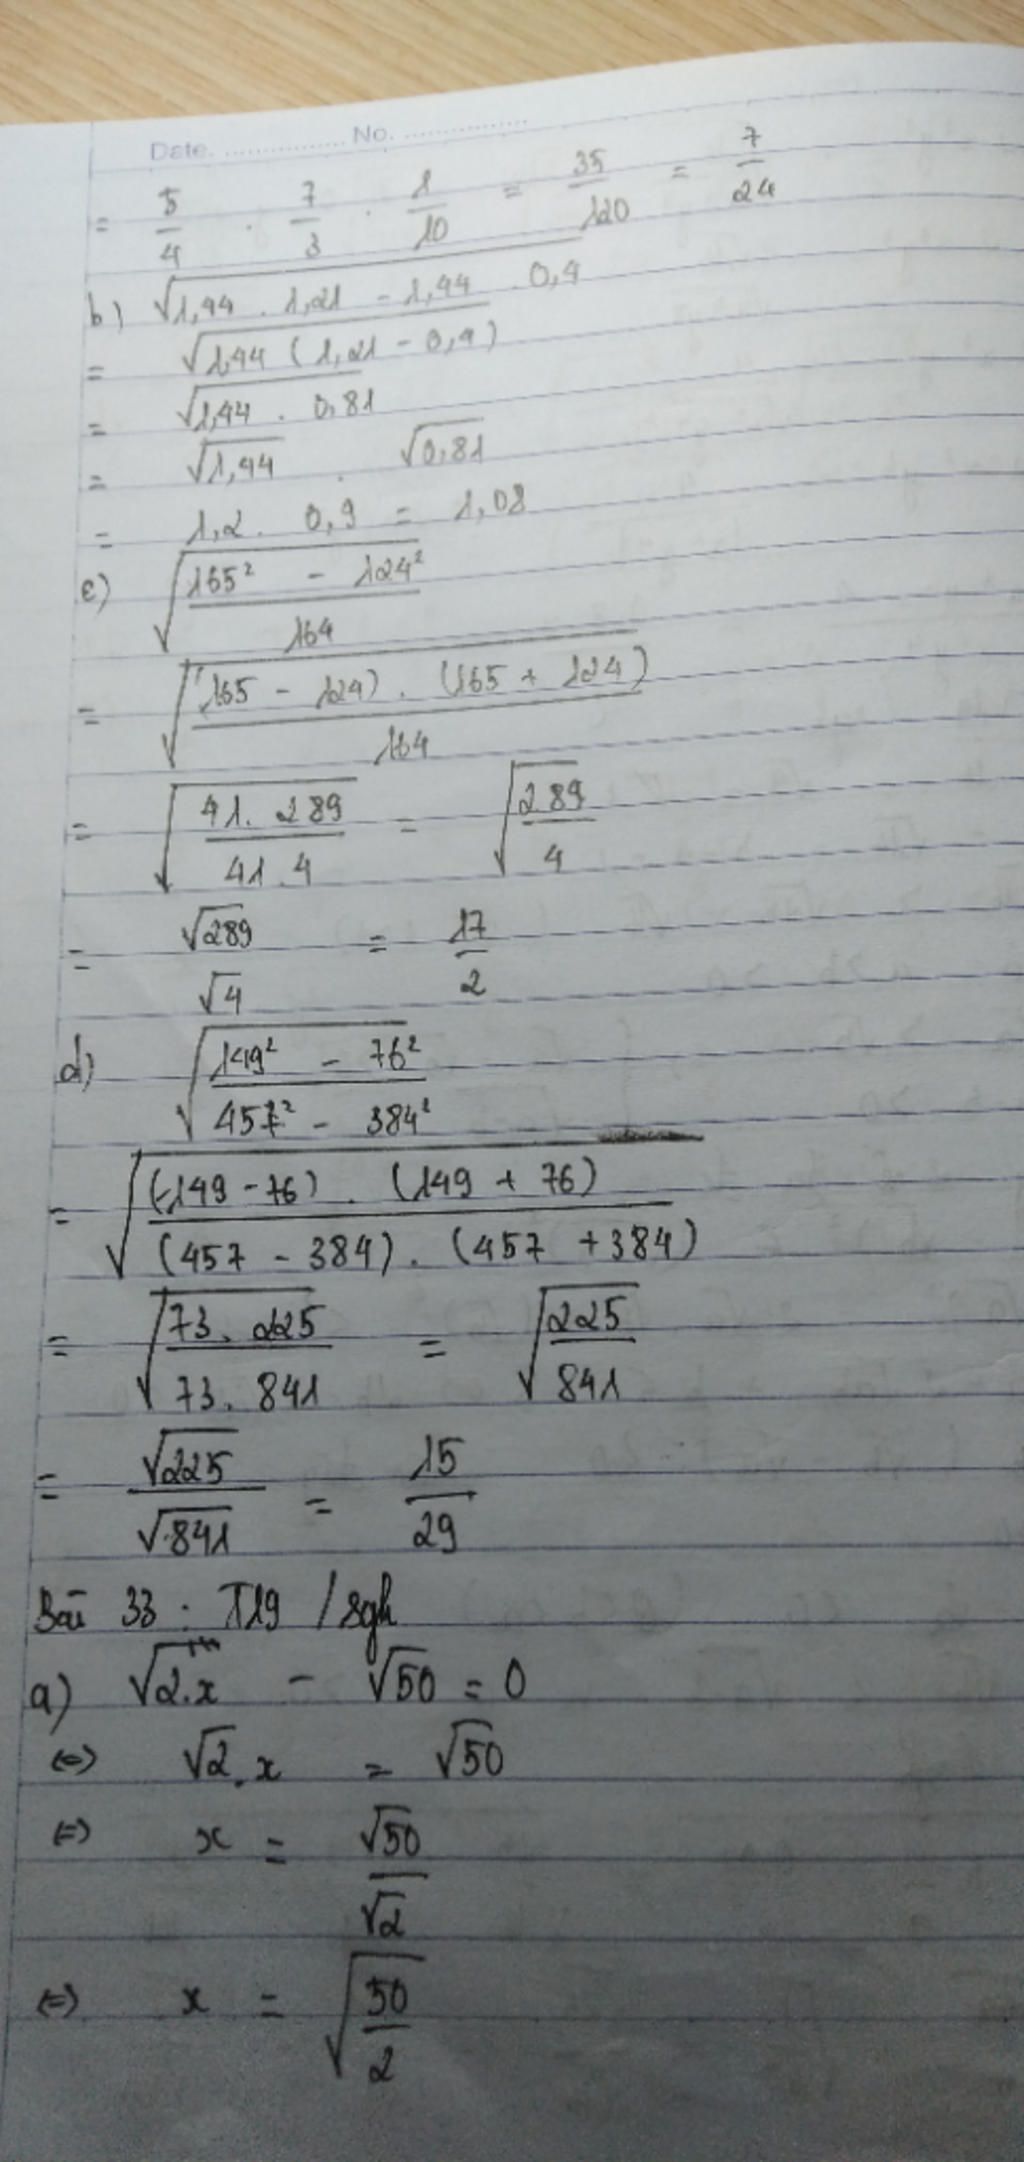 Date. ............... No. ...............
= 5/4 . 7/3 . 1/10 = 35/120 = 7/24
b) √1,44 . 1,21 - 1,44 . 0,4
= √1,44 (1,21 - 0,4)
= √1,44 . 0,81
= √1,44 . √0,81
= 1,2 . 0,9 = 1,08
c) √(165² - 124²)/164
= √(165 - 124) . (165 + 124)/164
= √(41 . 289)/(41 . 4) = √289/4
= √289/√4 = 17/2
d) √(149² - 76²)/(457² - 384²)
= √(149 - 76) . (149 + 76)/(457 - 384) . (457 + 384)
= √(73 . 225)/(73 . 841) = √225/841
= √225/√841 = 15/29
Bài 33 : T19 / sgk
a) √2.x - √50 = 0
⇔ √2.x = √50
⇔ x = √50/√2
⇔ x = √50/2